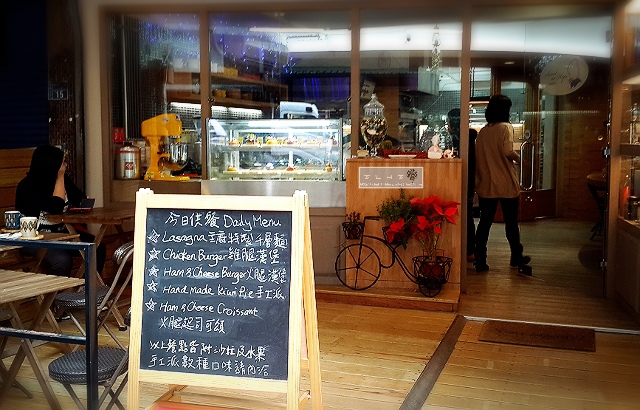 今日供餐 Dady Menu
☆ Lasagna 主廚特製千層麵
☆ Chicken Burger 雞腿漢堡
☆ Ham & Cheese Burger 火腿漢堡
☆ Hand made Kiun Pie 手工派
☆ Ham & Cheese Croissant
火腿起司可頌
以上餐點皆附沙拉及水果
手工派數種口味請內洽